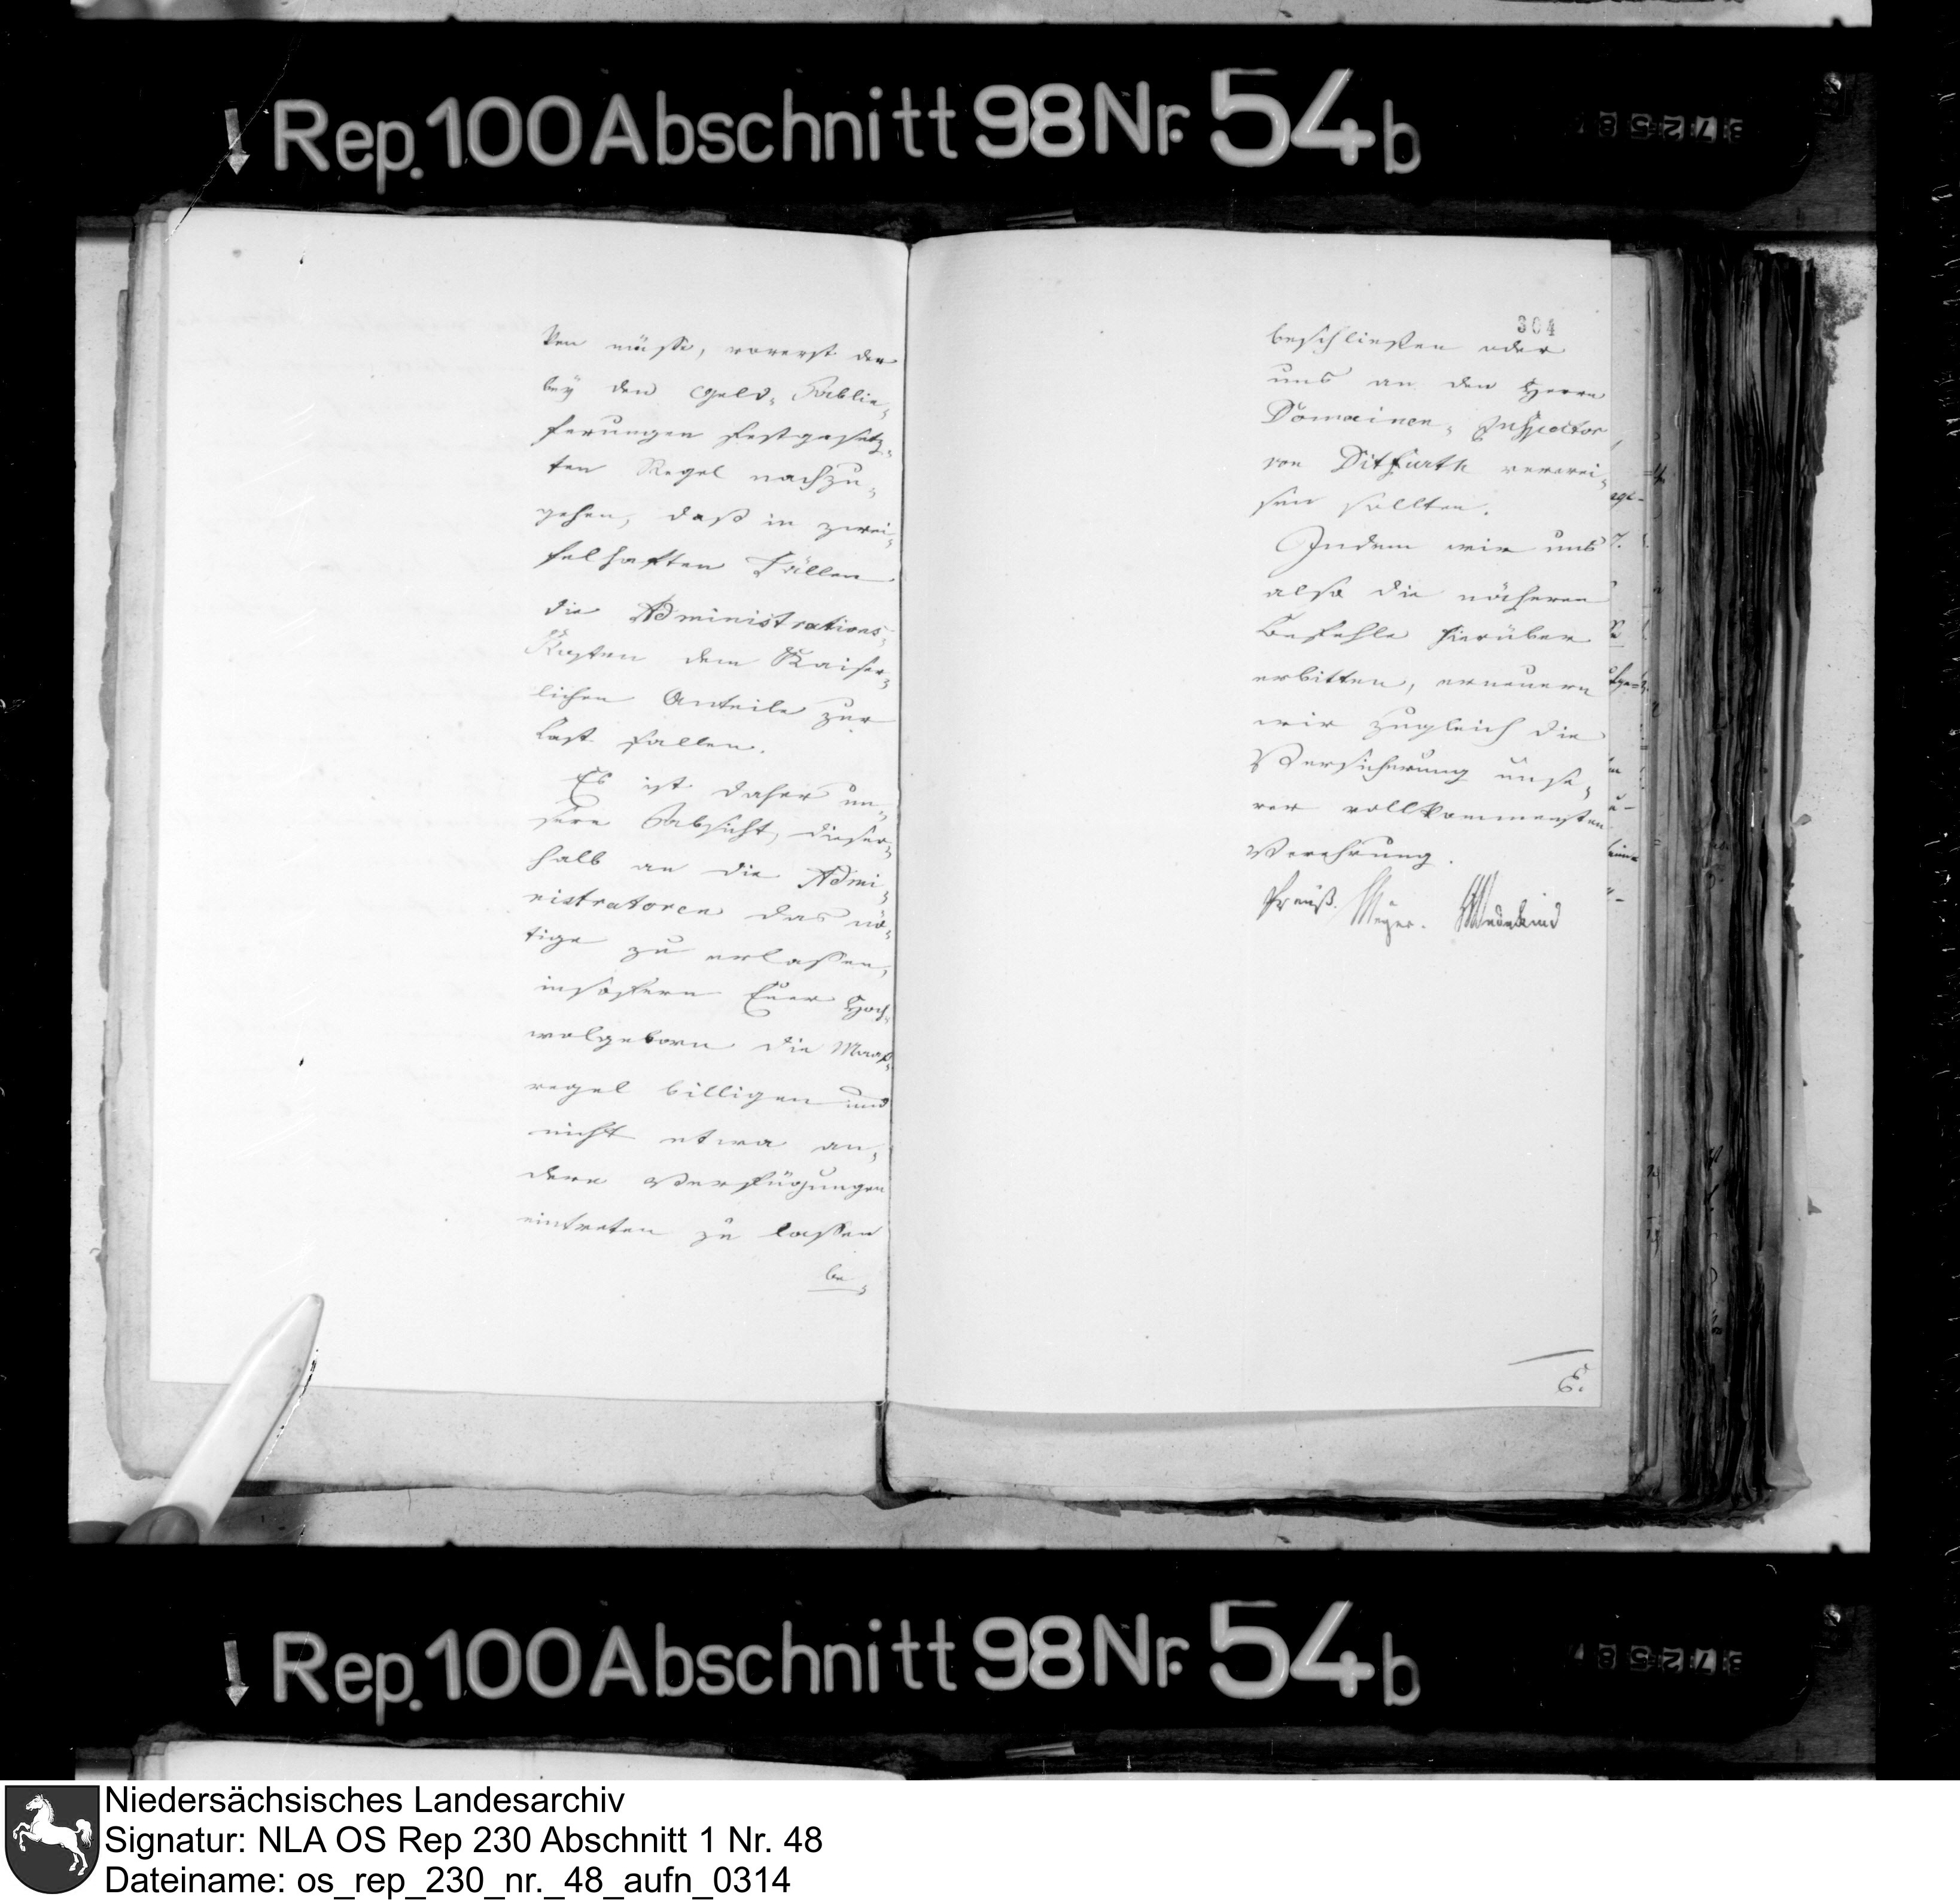 ↓ Rep. 100 Abschnitt 98 Nr. 54b
ken müsse, vorerst der
bey den Geld-Ablie-
ferungen festgesetz-
ten Regel nachzu-
gehen, daß in zwei-
felhaften Fällen
die Administrations-
Kosten dem Kaiser-
lichen Anteile zur
Last fallen.
Es ist daher un-
sere Absicht, dieser-
halb an die Admi-
nistratoren das nö-
tige zu erlassen,
insofern Euer Hoch-
wolgeborn die Maaß-
regel billigen und
nicht etwa an-
dere Verfügungen
eintreten zu lassen
be-
304
beschließen oder
uns an den Herrn
Domainen-Inspector
von Ditfurth verwei-
sen sollten.
Indem wir uns
also die näheren
Befehle hierüber
erbitten, erneuern
wir zugleich die
Versicherung unse-
rer vollkommensten
Verehrung.
Preuß. Meyer. Wedekind
↓ Rep. 100 Abschnitt 98 Nr. 54b
Niedersächsisches Landesarchiv
Signatur: NLA OS Rep 230 Abschnitt 1 Nr. 48
Dateiname: os_rep_230_nr._48_aufn_0314